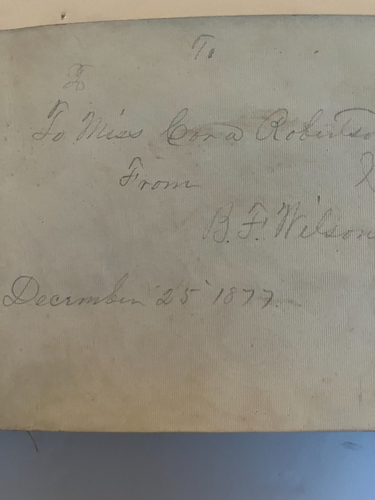 To
To
To Miss Cora Robertso
From
B. F. Wilson
December 25 1877